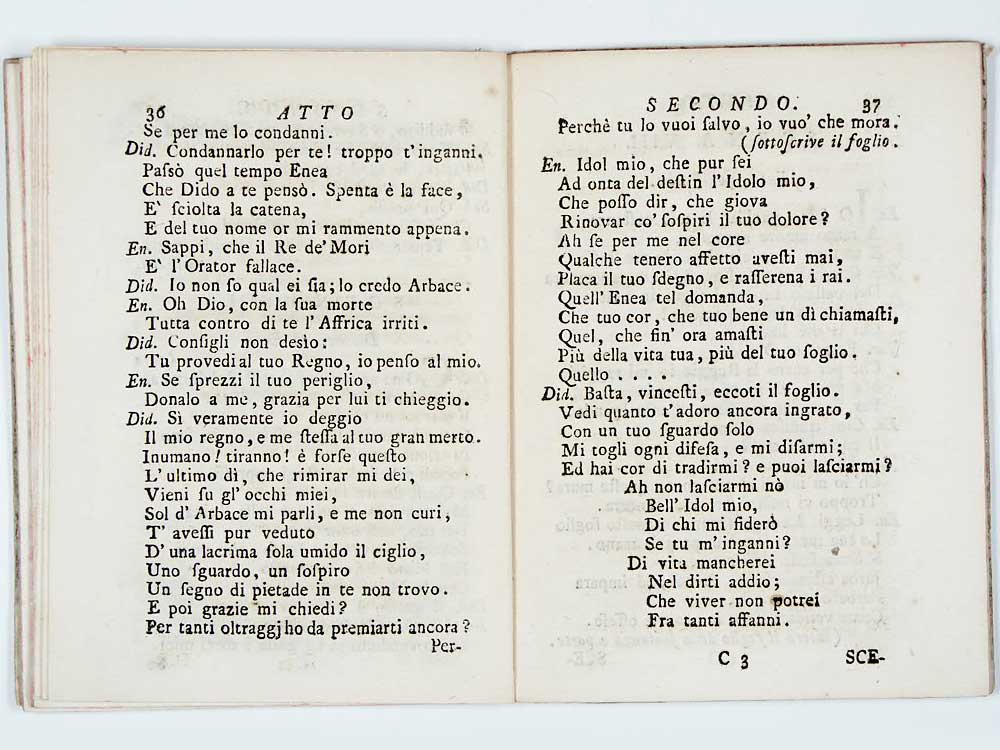 36 ATTO
Se per me lo condanni.
Did. Condannarlo per te! troppo t'inganni.
Paſsò quel tempo Enea
Che Dido a te pensò. Spenta è la face,
E' ſciolta la catena,
E del tuo nome or mi rammento appena.
En. Sappi, che il Re de' Mori
E' l'Orator fallace.
Did. Io non ſo qual ei ſia; lo credo Arbace.
En. Oh Dio, con la ſua morte
Tutta contro di te l'Affrica irriti.
Did. Conſigli non desìo:
Tu provedi al tuo Regno, io penſo al mio.
En. Se ſprezzi il tuo periglio,
Donalo a me, grazia per lui ti chieggio.
Did. Sì veramente io deggio
Il mio regno, e me ſteſſa al tuo gran merto.
Inumano! tiranno! è forſe queſto
L'ultimo dì, che rimirar mi dei,
Vieni ſu gl'occhi miei,
Sol d'Arbace mi parli, e me non curi,
T'aveſſi pur veduto
D'una lacrima ſola umido il ciglio,
Uno ſguardo, un ſoſpiro
Un ſegno di pietade in te non trovo.
E poi grazie mi chiedi?
Per tanti oltraggj ho da premiarti ancora?
Per-
SECONDO. 37
Perchè tu lo vuoi ſalvo, io vuo' che mora.
(ſottoſcrive il foglio.
En. Idol mio, che pur ſei
Ad onta del deſtin l'Idolo mio,
Che poſſo dir, che giova
Rinovar co' ſoſpiri il tuo dolore?
Ah ſe per me nel core
Qualche tenero affetto aveſti mai,
Placa il tuo ſdegno, e raſſerena i rai.
Quell' Enea tel domanda,
Che tuo cor, che tuo bene un dì chiamaſti,
Quel, che fin' ora amaſti
Più della vita tua, più del tuo ſoglio.
Quello . . . .
Did. Baſta, vinceſti, eccoti il foglio.
Vedi quanto t'adoro ancora ingrato,
Con un tuo ſguardo ſolo
Mi togli ogni difeſa, e mi diſarmi;
Ed hai cor di tradirmi? e puoi laſciarmi?
Ah non laſciarmi nò
Bell' Idol mio,
Di chi mi fiderò
Se tu m'inganni?
Di vita mancherei
Nel dirti addio;
Che viver non potrei
Fra tanti affanni.
C 3 SCE-